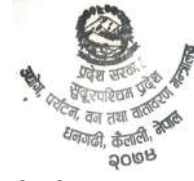 प्रदेश सरकार
सुदूरपश्चिम प्रदेश
उद्योग, पर्यटन, वन तथा वातावरण मन्त्रालय
धनगढी, कैलाली, नेपाल
२०७४